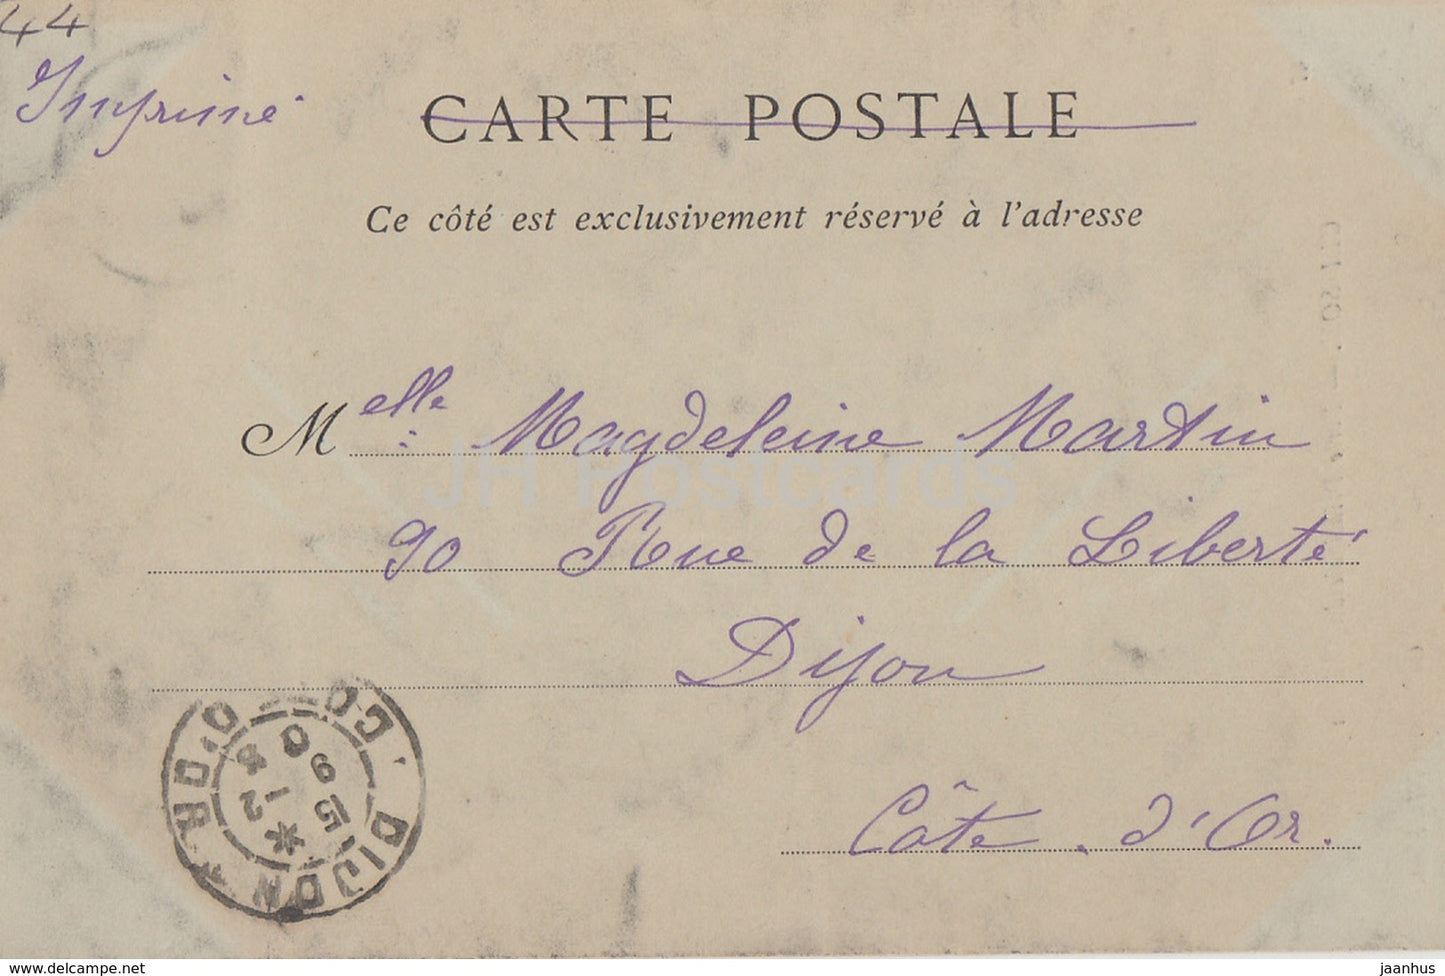 44
Imprimé
CARTE POSTALE
Ce côté est exclusivement réservé à l'adresse
Melle Magdeleine Martin
90 Rue de la Liberté
Dijon
Côte. d'Or.
DIJON
CÔTE-D'OR
JH Postcards
www.delcampe.net
jaanhus